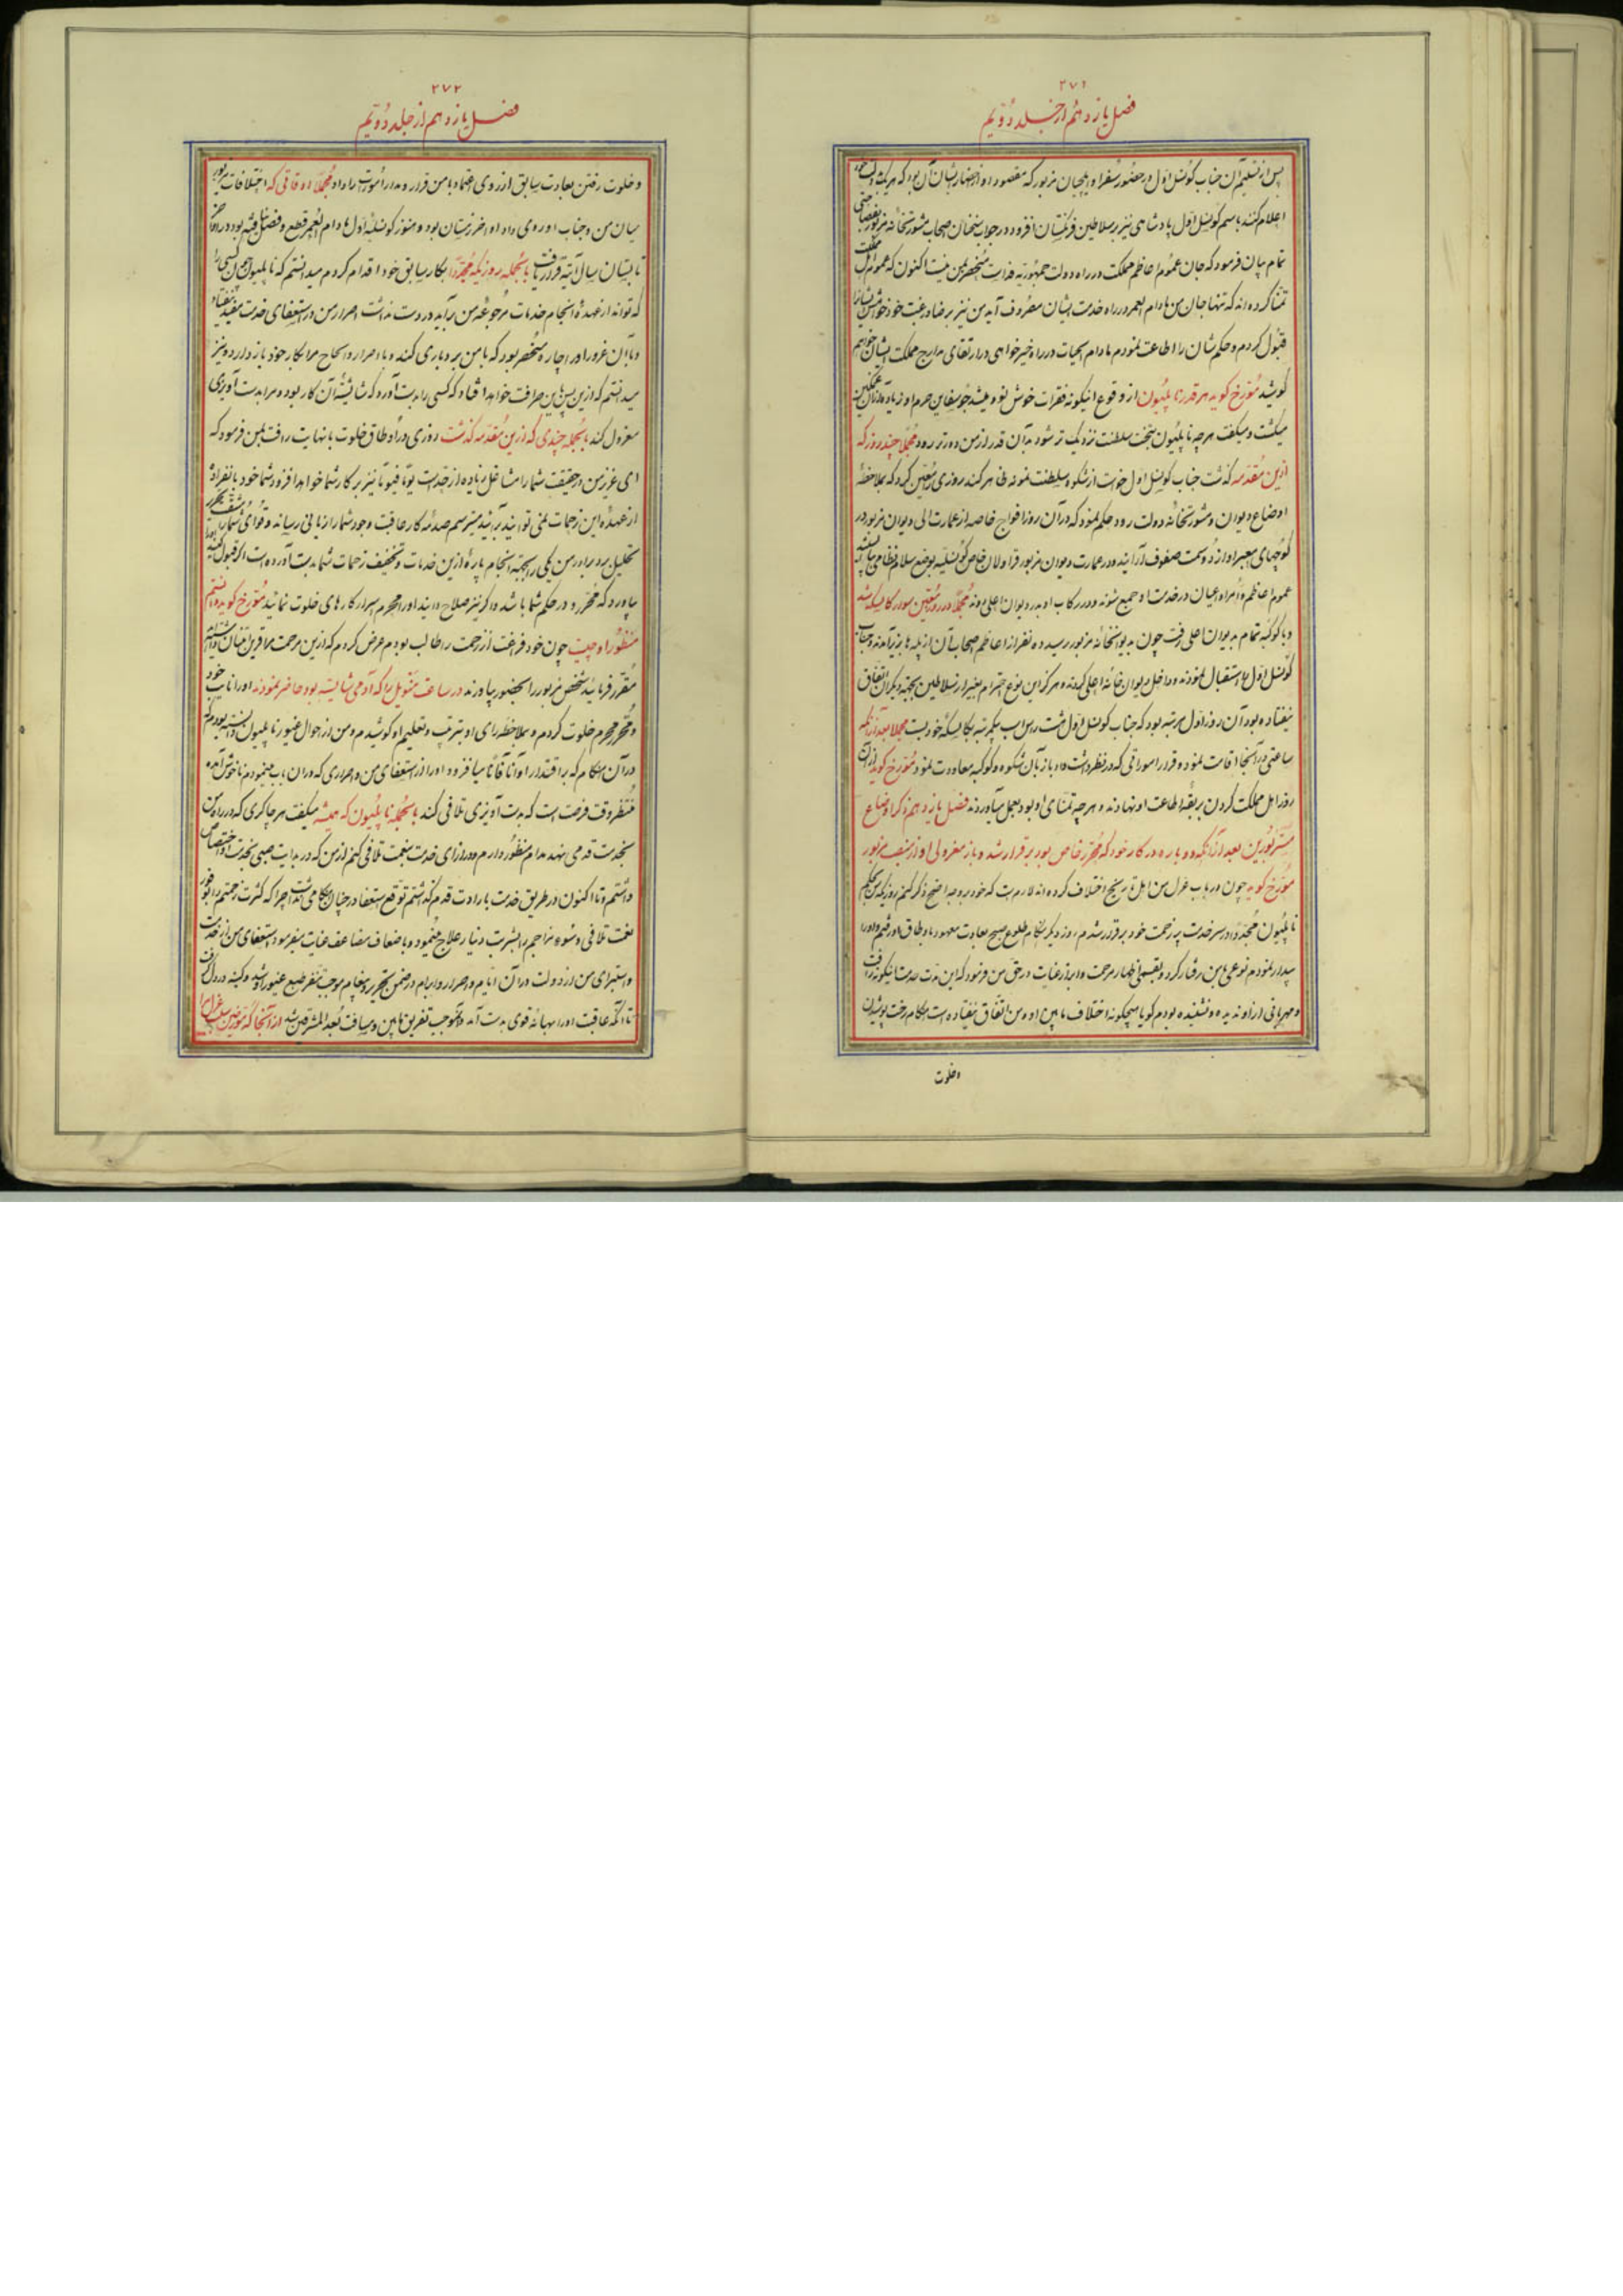 ۲۷۱
فصل یازدهم از جلد دویم
پس از تسلیم آن جناب کونسل اول در حضور سفرا و ایلچیان مزبور که مقصود او از احضار ایشان آن بود که هر یک بدولت خود
اعلام کنند باسم کونسل اول پادشاهی نیز بر سلاطین فرنکستان افزوده در جواب سخنان اصحاب مشورتخانه مزبور بفصاحتی
تمام بیان فرمود که جان عموم اعاظم مملکت در راه دولت جمهوریه فداست منحصر بمن نیست اکنون که عموم اهل مملکت
تمنا کرده‌اند که تنها جان من مادام العمر در راه خدمت ایشان مصروف آید من نیز بر رضا و رغبت خود خواهش ایشانرا
قبول کردم و حکم شان را اطاعت نمودم مادام الحیات در راه خیرخواهی و در ارتقای مدارج مملکت ایشان خواهم
کوشید مورخ کوید هر قدر ناپلیون از وقوع اینکونه فقرات خوش نود میشد جوسفاین حرم او زیاده از آن غمکین
میکشت و میکفت هر چه ناپلیون بتخت سلطنت نزدیک تر شود بدان قدر از من دورتر رود مجملا چند روز که
ازین مقدمه کذشت جناب کونسل اول خواست از شکوه سلطنت نمونه ظاهر کند روزی را معین کرد که بملاحظه
اوضاع دیوان و مشورتخانه دولت رود حکم نمود که در آن روز افواج خاصه از عمارت الی دیوان مزبور در
کوچهای معبر او از دو سمت صفوف آرایند و در عمارت دیوان مزبور قراولان خاص کونسلیه بوضع سلام نظامی بایستند
عموم اعاظم و امرا و اعیان در خدمت او جمع شوند و در رکاب او بدر دیوان اعلی روند مجملا در روز معین سوار کالسکه شد
و با کوکبه تمام بدیوان اعلی رفت چون بدیوانخانه مزبور رسید ده نفر از اعاظم اصحاب آن از پله‌ها بزیر آمدند و جناب
کونسل اول را استقبال نمودند و داخل دیوان خانه اعلی کردند هرکز این نوع احترام بغیر از سلاطین بجهته دیکران اتفاق
نیفتاده بود آن روز اول مرتبه بود که جناب کونسل اول هشت راس اسب یکمرتبه بکالسکه خود بست مجملا بعد از آنکه
ساعتی در آنجا اقامت نموده و قرار اموراتی که در نظر داشت داد باز بآن شکوه و کوکبه معاودت نمود مورخ کوید از آن
روز اهل مملکت کردن بربقه اطاعت او نهادند و هر چه تمنای او بود بعمل میآوردند فصل یازدهم ذکر اوضاع
مستر بورین بعد از آنکه دوباره در کار خود که محرر خاص بود برقرار شد و باز معزولی او از منصب مزبور
مورخ کوید چون در باب عزل من اهل تاریخ اختلاف کرده‌اند لازمست که خود بر وجه اصح ذکر کنم روزیکه من بحکم
ناپلیون مجددا در سر خدمت پر زحمت خود برقرار شدم روز دیکر هنکام طلوع صبح بعادت معهود باوطاق او رفتم و او را
بیدار نمودم نوعی با من رفتار کرد و بقسمی اظهار مرحمت و ابراز عنایت در حق من فرمود که این مدت مدت اینکونه رافت
و مهربانی از او ندیده و نشنیده بودم کویا هیچکونه اختلاف مابین او و من اتفاق نیفتاده است هنکام رخت پوشیدن
و خلوت
۲۷۲
فصل یازدهم از جلد دویم
و خلوت رفتن بعادت سابق از روی اعتماد با من قرار و مدار امورات را داد مجملا اوقاتی که اختلافات مزبور
میان من و جناب او روی داد اواخر زمستان بود و هنوز کونسلیه اول مادام العمر قطع و فصل نیافته بود
تابستان سال آتیه قرار یافت بالجمله روزیکه مجددا بکار سابق خود اقدام کردم میدانستم که ناپلیون چون کسی را
که تواند از عهده انجام خدمات مرجوعه من برآید در دست نداشت اصرار من در استعفای خدمت مفید نیفتاد
و با آن غرور او را چاره منحصر بود که با من بردباری کند و با اصرار و الحاح مرا بکار خود باز دارد و نیز
میدانستم که ازین پس باین صرافت خواهد افتاد که کسی را بدست آورد که شایسته آن کار بود و مرا بدست آویزی
معزول کند بالجمله چندی که ازین مقدمه کذشت روزی در اوطاق خلوت با نهایت رافت بمن فرمود که
ای عزیز من در حقیقت شما را مشاغل زیاده از حد است یوما فیوما نیز بر کار شما خواهد افزود شما خود بانفراد
از عهده این زحمات نمی توانید برآیید میترسم صدمه کار عاقبت وجود شما را زیانی رساند و قوای شما را
تحلیل برد برادر من یکی را بجهته انجام پاره ازین خدمات و تخفیف زحمات شما بدست آورده است اکر قبول کنید
بیاورد که محرر و در حکم شما باشد و اکر نیز صلاح دانید او را محرم اسرار کارهای خلوت نمائید مورخ کوید دانستم
منظور او چیست چون خود فراغت از زحمت را طالب بودم عرض کردم که ازین مرحمت مرا قرین امتنان داشتید
مقرر فرمائید شخص مزبور را بحضور بیاورند در ساعت منویل را که آدمی شایسته بود حاضر نمودند او را نایب خود
و محرر محرم خلوت کردم و بملاحظه رای او بتربیت و تعلیم او کوشیدم و من از احوال غیور ناپلیون دانسته بودم که
در آن هنکام که بر اقتدار او آنا فآنا میافزود او را از استعفای من و اصراری که در آن باب مینمودم ناخوش آمده
منتظر وقت فرصت است که بدست آویزی تلافی کند بالجمله ناپلیون که همیشه میکفت هر چاکری که در راه من
بخدمت قدمی نهد مدام منظور دارم و در ازای خدمت بنعمت تلافی کنم از من که در بدایت صبی بخدمت او اختصاص
داشتم و تا اکنون در طریق خدمت بارادت قدم کذاشتم توقع استعفا در چنان هنکامی نداشت چرا که کثرت زحمتم را بوفور
نعمت تلافی و سوء مزاجم را بشربت دینار علاج مینمود و باضعاف مضاعف عنایت میفرمود استعفای من از خدمت
و استبرای من از دولت در آن ایام و اصرار و ابرام در ضمن تحریر و پیغام موجب تنفر طبع غیور او شد و کینه در دل کرفت
تا آنکه عاقبت او را بهانه قوی بدست آمد و موجب تفریق مابین و مسافت بعد المشرقین شد از آنجا که مورخین سبب عزل مرا